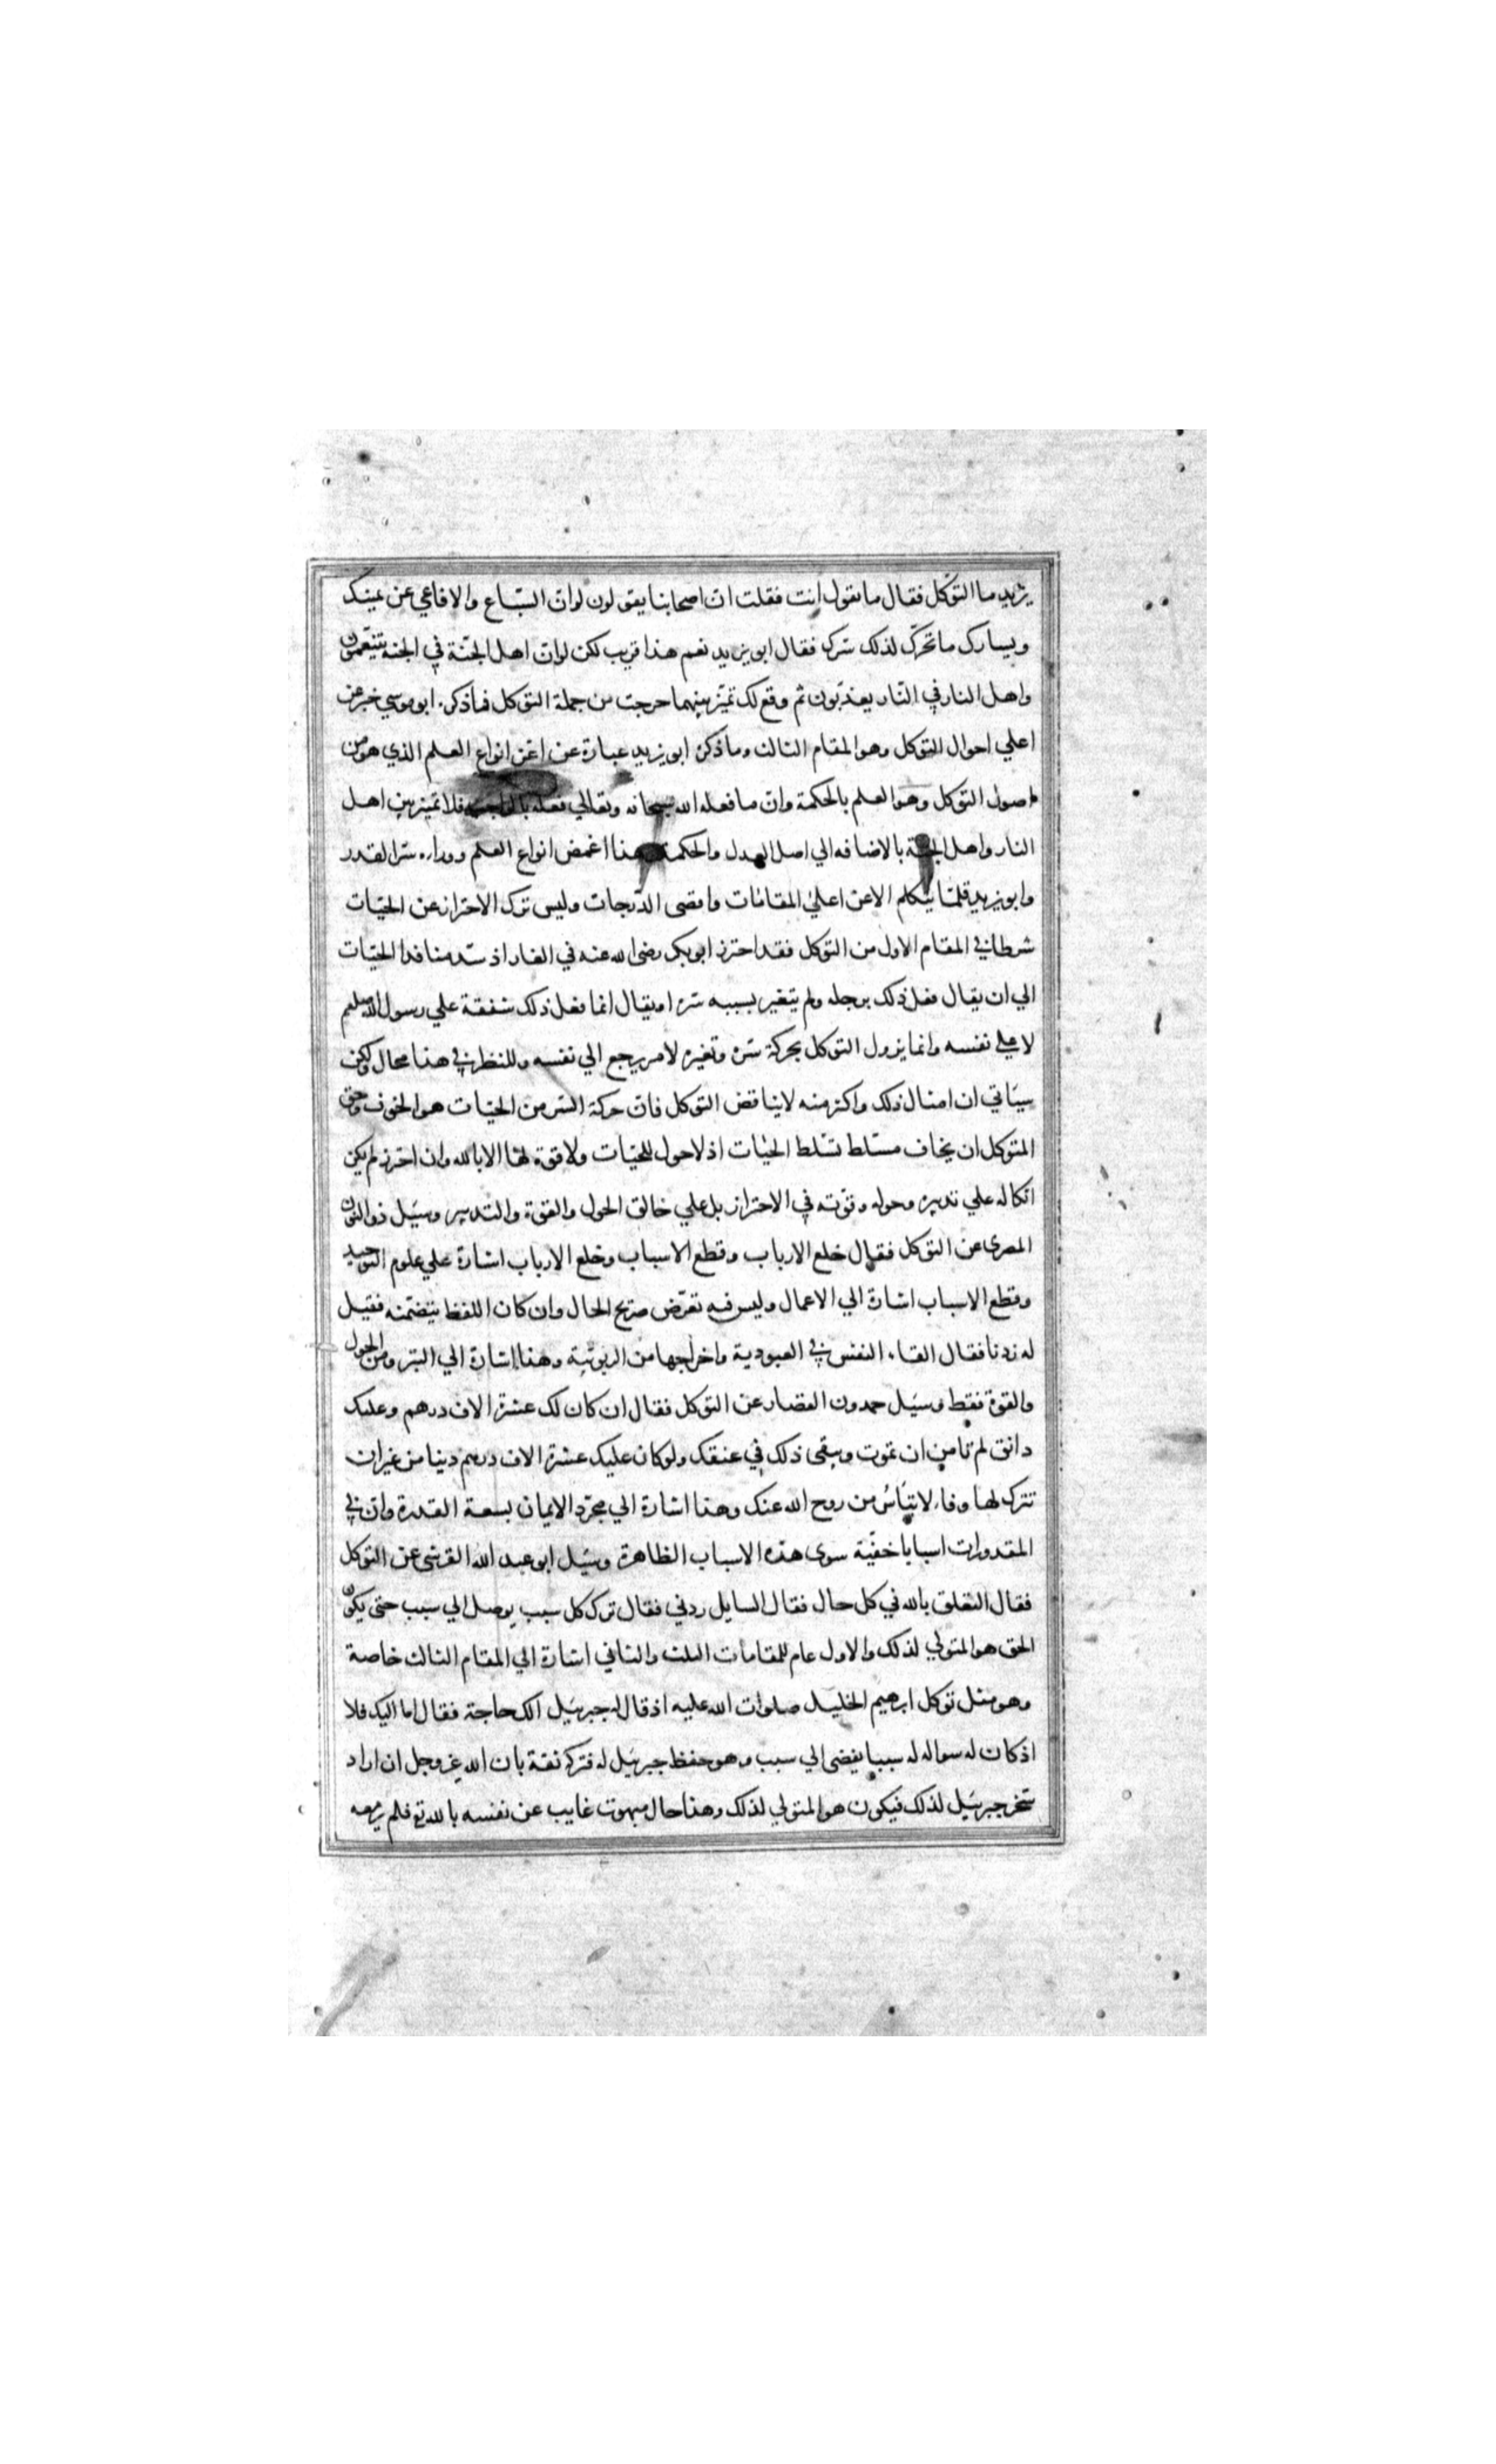 يزيد ما التوكل فقال ما تقول انت فقلت ان اصحابنا يقولون لو ان السباع والافاعي عن يمينك
ويسارك ما تحرك لذلك سرك فقال ابو يزيد نعم هذا قريب لكن لو ان اهل الجنة في الجنة يتنعمون
واهل النار في النار يعذبون ثم وقع لك تميز بينهما خرجت من جملة التوكل فما ذكره ابو موسي خبر عن
اعلي احوال التوكل وهو المقام الثالث وما ذكره ابو يزيد عبارة عن اعز انواع العلم الذي هو من
اصول التوكل وهو العلم بالحكمة وان ما فعله الله سبحانه وتعالي فعله بالواجب فلا تميز بين اهل
النار واهل الجنة بالاضافه الي اصل العدل والحكمة وهذا اغمض انواع العلم ووراءه سر القدر
وابو يزيد قلما يتكلم الا عن اعلي المقامات واقصى الدرجات وليس ترك الاحتراز عن الحيات
شرطا في المقام الاول من التوكل فقد احترز ابو بكر رضى الله عنه في الغار اذ سد منافذ الحيات
الي ان يقال فعل ذلك برجله ولم يتغير بسببه سره او يقال انما فعل ذلك شفقة علي رسول الله صلعم
لا على نفسه وانما يزول التوكل بحركة سره وتغيره لامر يرجع الي نفسه وللنظر في هذا محال ولكن
سياتي ان امثال ذلك واكثر منه لا يناقض التوكل فان حركة السر من الحيات هو الخوف وحق
المتوكل ان يخاف مسلط تسلط الحيات اذ لا حول للحيات ولا قوة لها الا بالله وان احترز لم يكن
اتكاله علي تدبيره وحوله وقوته في الاحتراز بل علي خالق الحول والقوة والتدبير وسيل ذو النون
المصرى عن التوكل فقال خلع الارباب وقطع الاسباب وخلع الارباب اشارة علي علوم التوحيد
وقطع الاسباب اشارة الي الاعمال وليس فيه تعرض صريح الحال وان كان اللفظ يتضمنه فقيل
له زدنا فقال القاء النفس في العبودية واخراجها من الربوبية وهذا اشارة الي التبرو من الحول
والقوة فقط وسيل حمدون القصار عن التوكل فقال ان كان لك عشرة الاف درهم وعليك
دانق لم تامن ان تموت ويبقى ذلك في عنقك ولو كان عليك عشرة الاف درهم دينا من غير ان
تترك لها وفاء لا تياس من روح الله عنك وهذا اشارة الي مجرد الايمان بسعة القدرة وان في
المقدورات اسبابا خفية سوى هذه الاسباب الظاهرة وسيل ابو عبد الله القرشى عن التوكل
فقال التعلق بالله في كل حال فقال السايل زدني فقال ترك كل سبب يوصل الي سبب حتى يكون
الحق هو المتولي لذلك والاول عام للمقامات الثلث والثاني اشارة الي المقام الثالث خاصة
وهو مثل توكل ابرهيم الخليل صلوات الله عليه اذ قال له جبرئيل الك حاجة فقال اما اليك فلا
اذ كان له سواله له سببا يفضى الي سبب وهو حفظ جبرئيل له فتركه ثقة بان الله عز وجل ان اراد
سخر جبرئيل لذلك فيكون هو المتولي لذلك وهذا حال مبهوت غايب عن نفسه بالله تع فلم ير معه